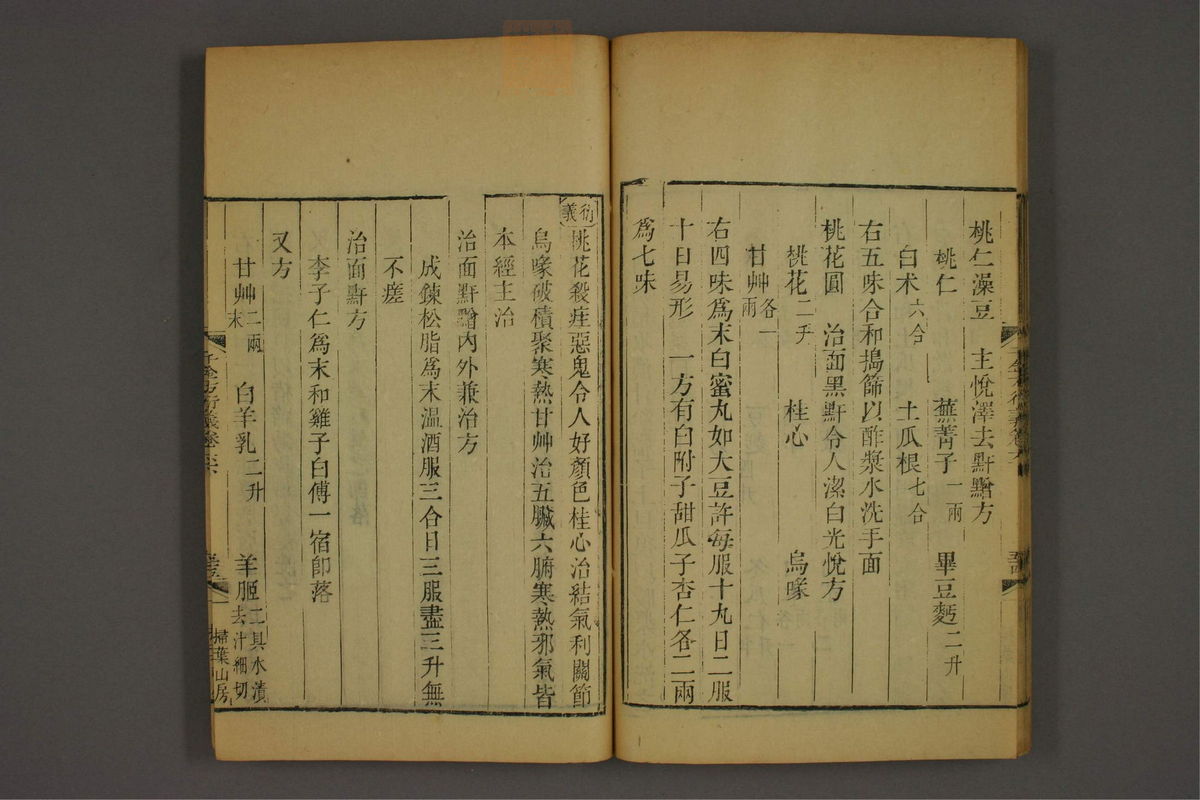 桃仁澡豆　主悅澤去䵟䵴方
桃仁　蕪菁子一兩　畢豆麪二升
白朮六合　土瓜根七合
右五味合和搗篩以酢漿水洗手面
桃花圓　治面黑䵟令人潔白光悅方
桃花二升　桂心　烏喙
甘艸各一兩
右四味爲末白蜜丸如大豆許每服十丸日二服
十日易形　一方有白附子甜瓜子杏仁各二兩
爲七味
衍義　桃花殺疰惡鬼令人好顏色桂心治結氣利關節
烏喙破積聚寒熱甘艸治五臟六腑寒熱邪氣皆
本經主治
治面䵟䵴內外兼治方
成鍊松脂爲末溫酒服三合日三服盡三升無
不瘥
治面䵟方
李子仁爲末和雞子白傅一宿卽落
又方
甘艸二兩末　白羊乳二升　羊胵二具水漬去汁細切
千金方衍義卷六
掃葉山房